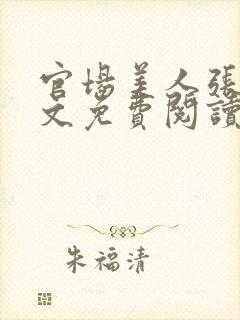 官場美人張
文免費閱讀
朱福清